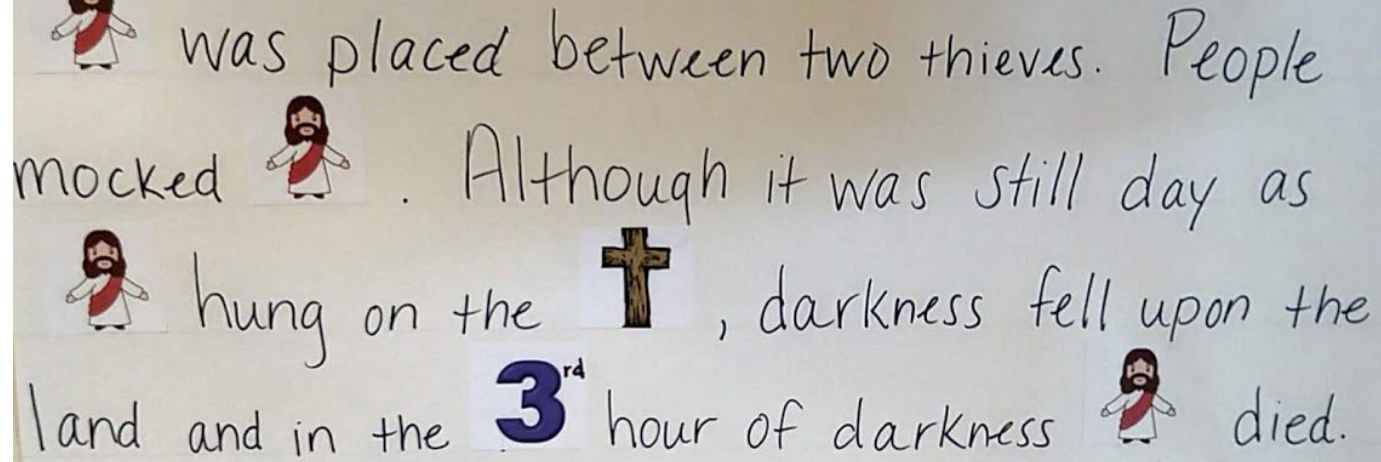 was placed between two thieves. People
mocked . Although it was still day as
hung on the , darkness fell upon the
land and in the 3rd hour of darkness died.